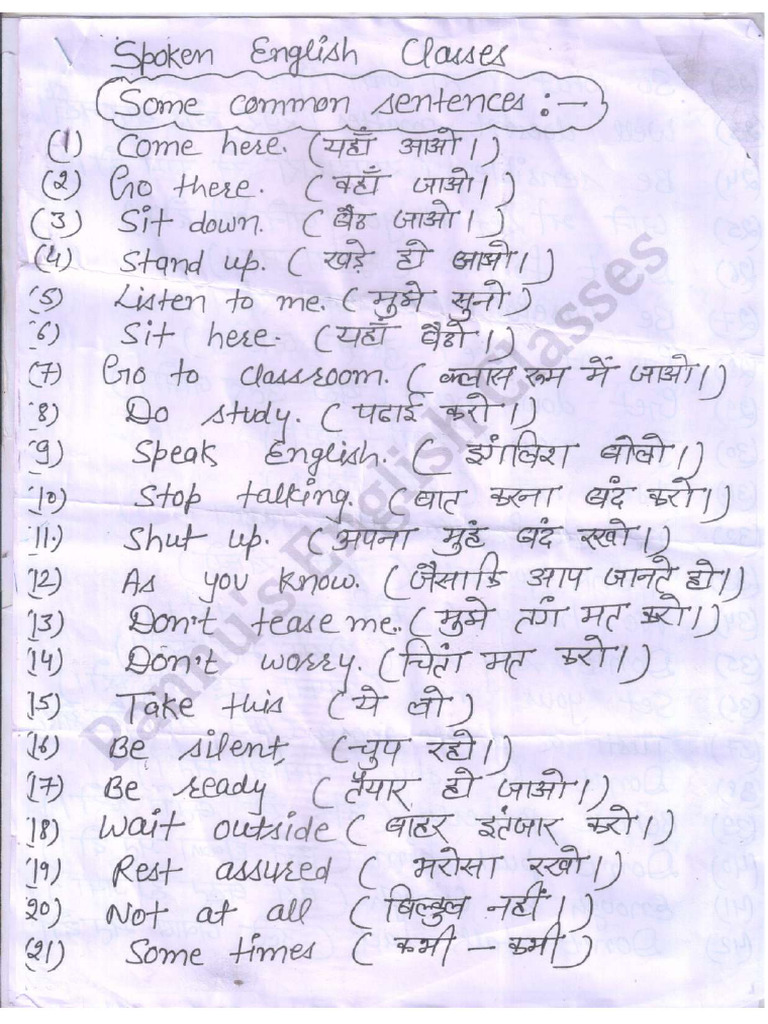 Spoken English Classes
Some common sentences :-
(1) Come here. (यहाँ आओ।)
(2) Go there. (वहाँ जाओ।)
(3) Sit down. (बैठ जाओ।)
(4) Stand up. (खड़े हो जाओ।)
(5) Listen to me. (मुझे सुनो)
(6) Sit here. (यहाँ बैठो।)
(7) Go to classroom. (क्लास रूम में जाओ।)
(8) Do study. (पढाई करो।)
(9) Speak English. (इंगलिश बोलो।)
(10) Stop talking. (बात करना बंद करो।)
(11) Shut up. (अपना मुहं बंद रखो।)
(12) As you know. (जैसाकि आप जानते हो।)
(13) Don't tease me. (मुझे तंग मत करो।)
(14) Don't worry. (चितां मत करो।)
(15) Take this (ये लो)
(16) Be silent, (चुप रहो।)
(17) Be ready (तैयार हो जाओ।)
(18) Wait outside (बाहर इंतजार करो।)
(19) Rest assured (भरोसा रखो।)
(20) Not at all (बिल्कुल नहीं।)
(21) Some times (कभी - कभी)
Pannu's English Classes